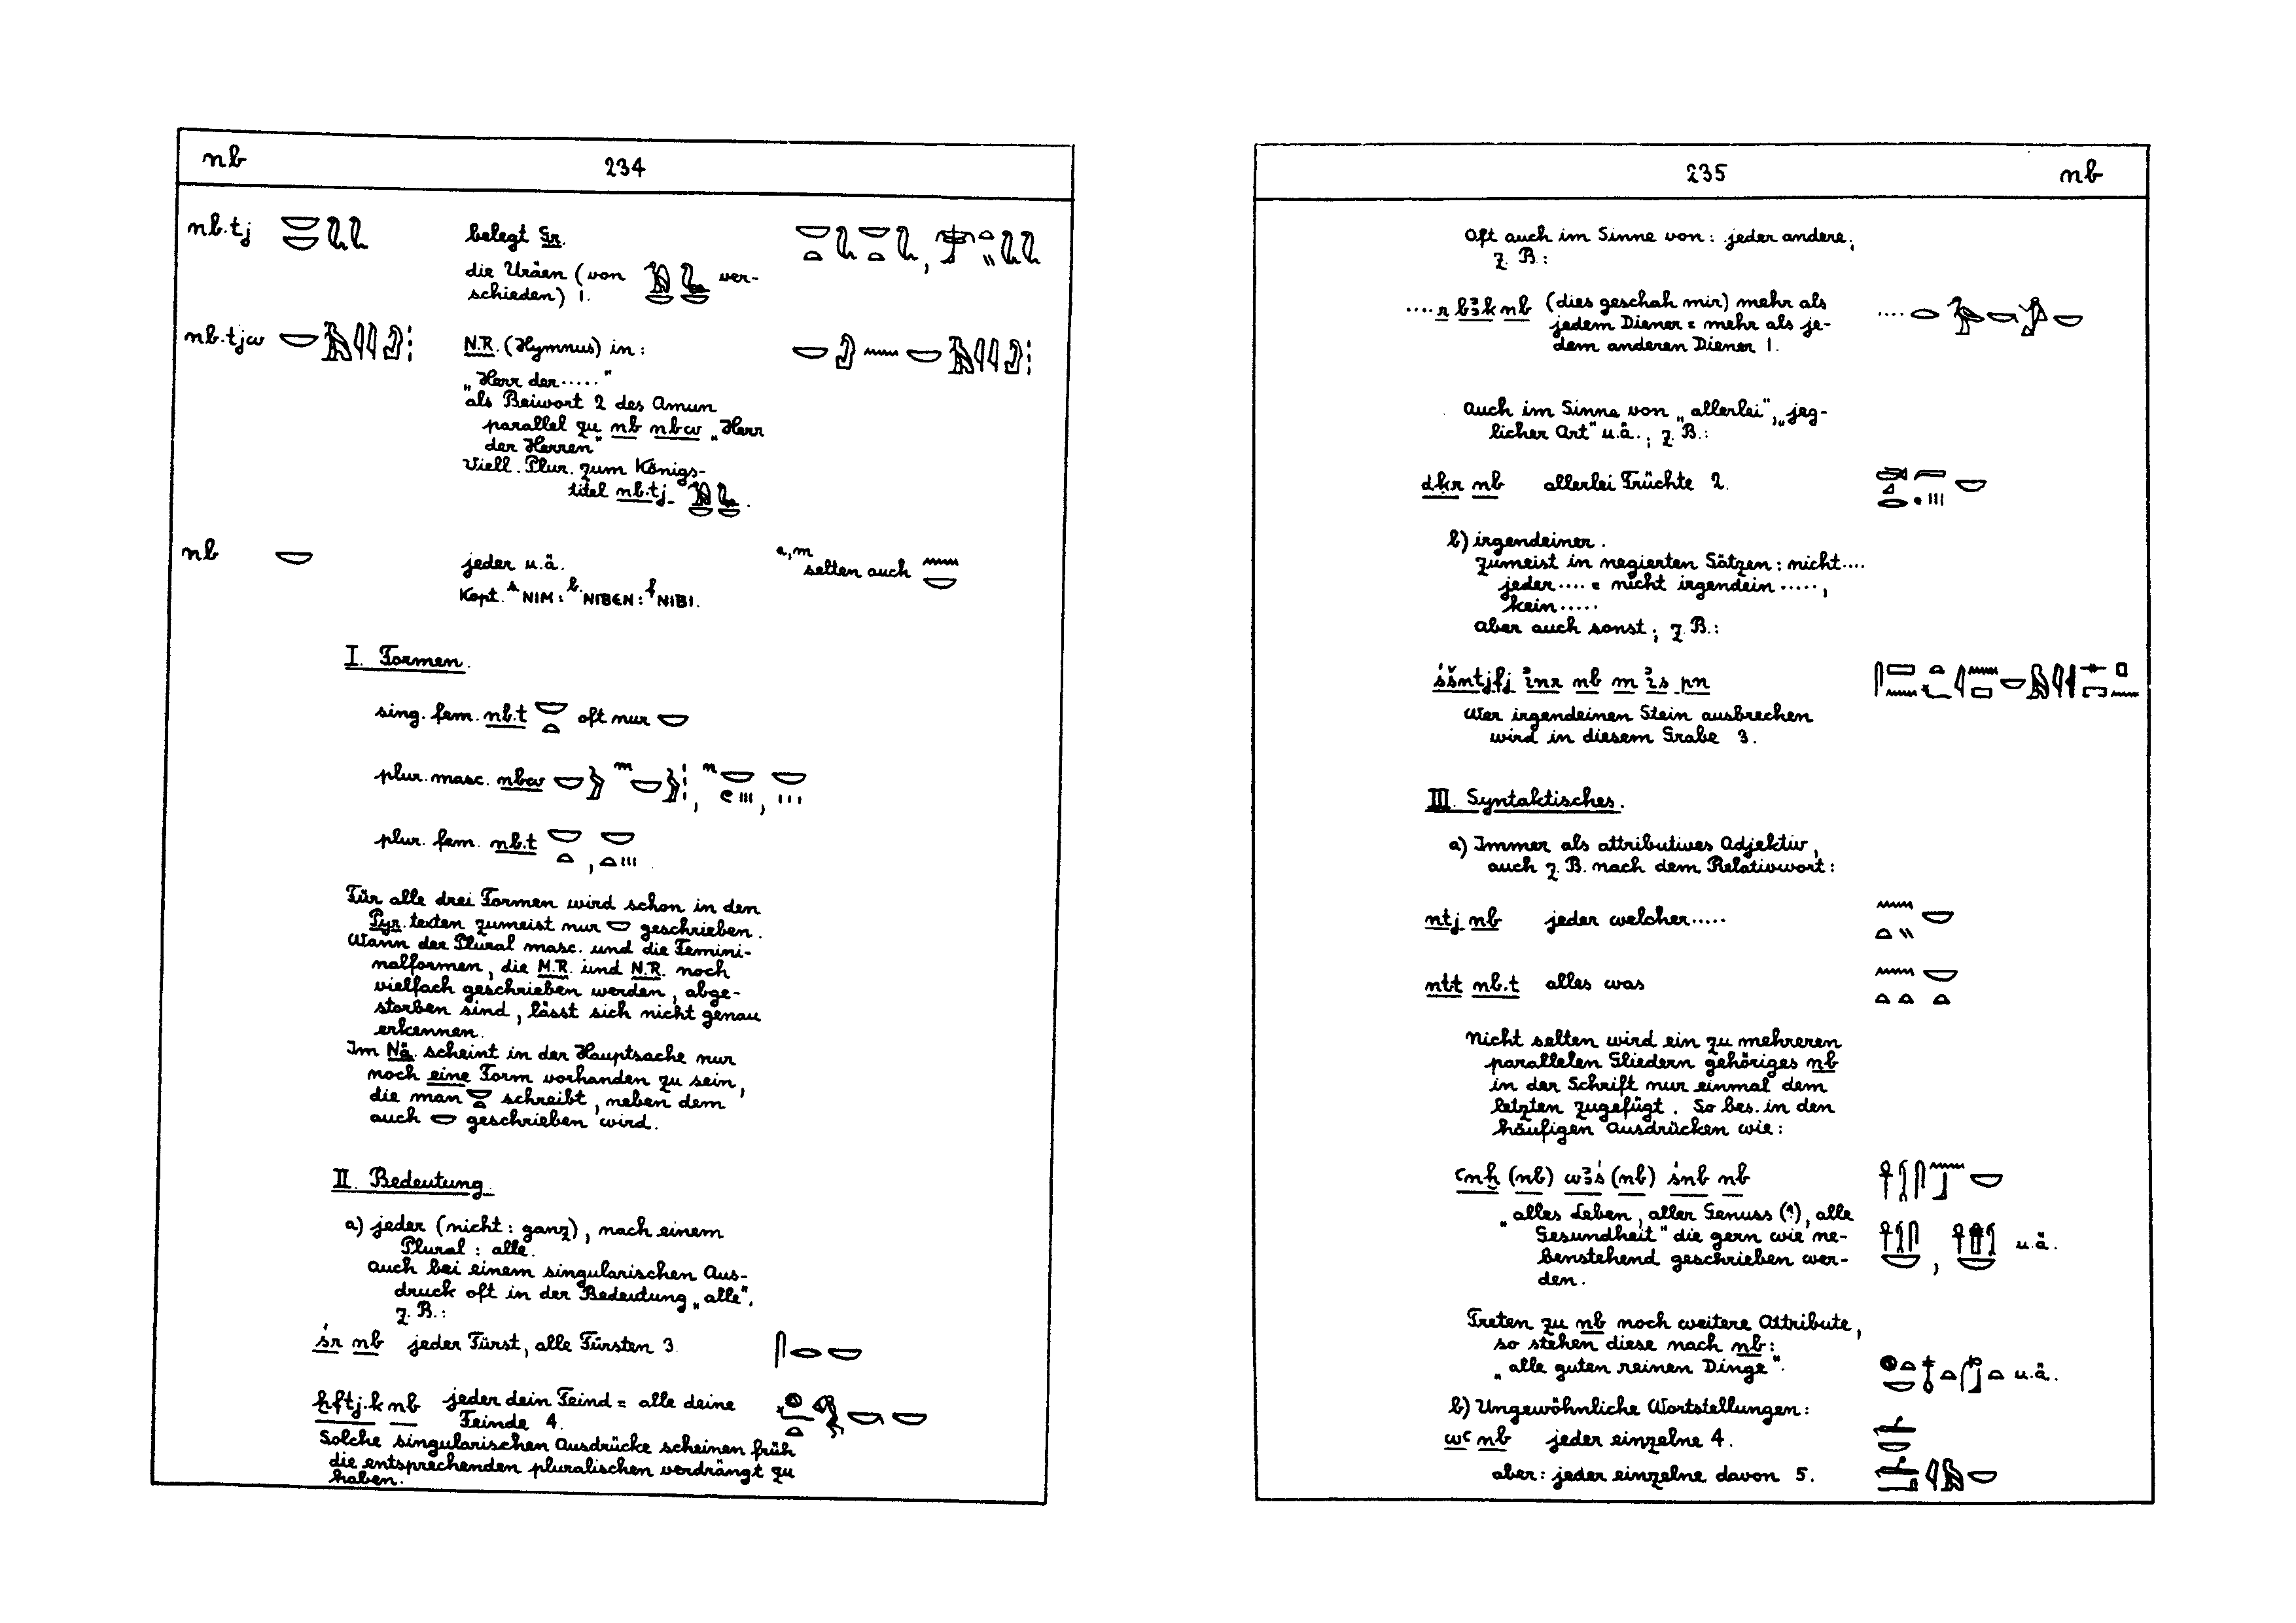 nb 234
nb.tj 𓎟𓎟𓆗𓆗 belegt Gr.
die Uräen (von ver-
schieden) 1.
nb.tjw N.R. (Hymnus) in:
„Herr der ..... "
als Beiwort 2 des Amun
parallel zu nb nbw „Herr
der Herren"
Viell. Plur. zum Königs-
titel nb.tj .
nb 𓎟 jeder u.ä. a,m selten auch 𓈖𓎟
Kopt. s. NIM : b. NIBEN : f. NIBI.
I. Formen.
sing. fem. nb.t 𓎟𓏏 oft nur 𓎟
plur. masc. nbw
plur. fem. nb.t 𓎟𓏏 , 𓎟𓏏𓏥 .
Für alle drei Formen wird schon in den
Pyr. texten zumeist nur 𓎟 geschrieben.
Wann der Plural masc. und die Femini-
nalformen, die M.R. und N.R. noch
vielfach geschrieben werden, abge-
storben sind, lässt sich nicht genau
erkennen.
Im Nä. scheint in der Hauptsache nur
noch eine Form vorhanden zu sein,
die man 𓎟𓏏 schreibt, neben dem
auch 𓎟 geschrieben wird.
II. Bedeutung.
a) jeder (nicht: ganz), nach einem
Plural : alle.
Auch bei einem singularischen Aus-
druck oft in der Bedeutung „alle".
z. B.:
śr nb jeder Fürst, alle Fürsten 3. 𓋴𓂋𓎟
ḫftj.k nb jeder dein Feind = alle deine
Feinde 4.
Solche singularischen Ausdrücke scheinen früh
die entsprechenden pluralischen verdrängt zu
haben.
235 nb
Oft auch im Sinne von: jeder andere;
z. B.:
.... r bꜣk nb (dies geschah mir) mehr als
jedem Diener = mehr als je-
dem anderen Diener 1.
Auch im Sinne von „allerlei", „jeg-
licher Art" u.ä.; z. B.:
dḳr nb allerlei Früchte 2.
b) irgendeiner.
Zumeist in negierten Sätzen: nicht ....
jeder .... = nicht irgendein .....,
kein .....
Aber auch sonst; z. B.:
śšntjfj ỉnr nb m ỉs pn
Wer irgendeinen Stein ausbrechen
wird in diesem Grabe 3.
III. Syntaktisches.
a) Immer als attributives Adjektiv,
auch z. B. nach dem Relativwort:
ntj nb jeder welcher ..... 𓈖𓏏𓏭𓎟
ntt nb.t alles was 𓈖𓏏𓏏𓎟𓏏
Nicht selten wird ein zu mehreren
parallelen Gliedern gehöriges nb
in der Schrift nur einmal dem
letzten zugefügt. So bes. in den
häufigen Ausdrücken wie:
ꜥnḫ (nb) wꜣś (nb) śnb nb 𓋹𓌀𓋴𓈖𓃀𓎟
„alles Leben, aller Genuss (?), alle
Gesundheit" die gern wie ne-
benstehend geschrieben wer- u.ä.
den.
Treten zu nb noch weitere Attribute,
so stehen diese nach nb:
„alle guten reinen Dinge". u.ä.
b) Ungewöhnliche Wortstellungen:
wꜥ nb jeder einzelne 4.
aber: jeder einzelne davon 5.